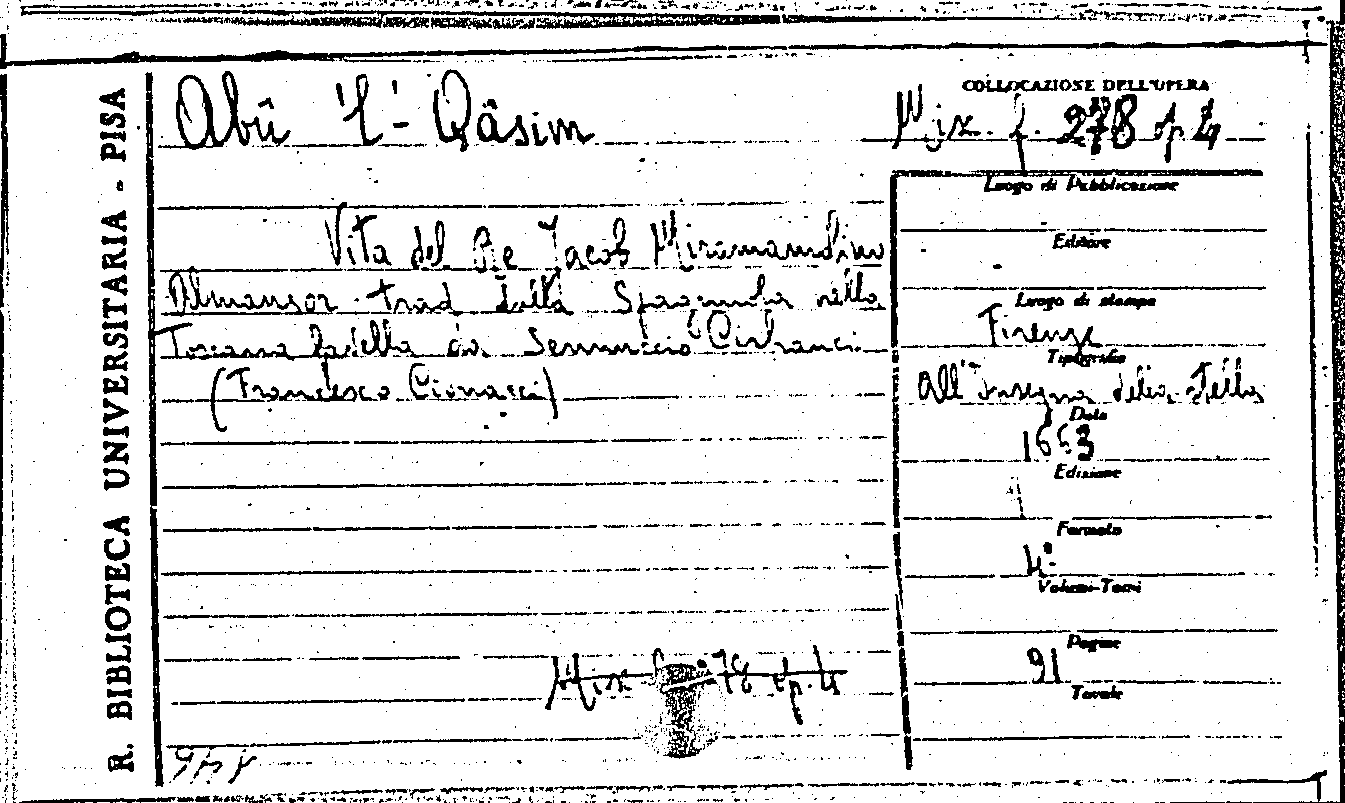 R. BIBLIOTECA UNIVERSITARIA - PISA
Abû 'l'- Qâsim
COLLOCAZIONE DELL'OPERA
Mix. f. 278 op 4
Vita del Re Jacob Miramamolino
Almansor. trad dalla Spagnuola nella
Toscana da
(Francesco Cionacci)
Luogo di Pubblicazione
Editore
Luogo di stampa
Firenze
Tipografia
All'Insegna della Stella
Data
1663
Edizione
Formato
4º
Volumi-Tomi
Pagine
91
Tavole
Mix f. 278 op. 4